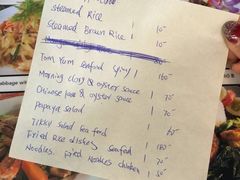 Steamed Rice 10-
Steamed Brown Rice 10-
Tom Yum seafood spicy 180-
Morning glory & oyster sauce 70-
Chinese kale & oyster sauce 70-
Papaya salad 70-
salad sea food
Fried rice chicken seafood 180-
Noodles. fried Noodles chicken 80-
abbage with